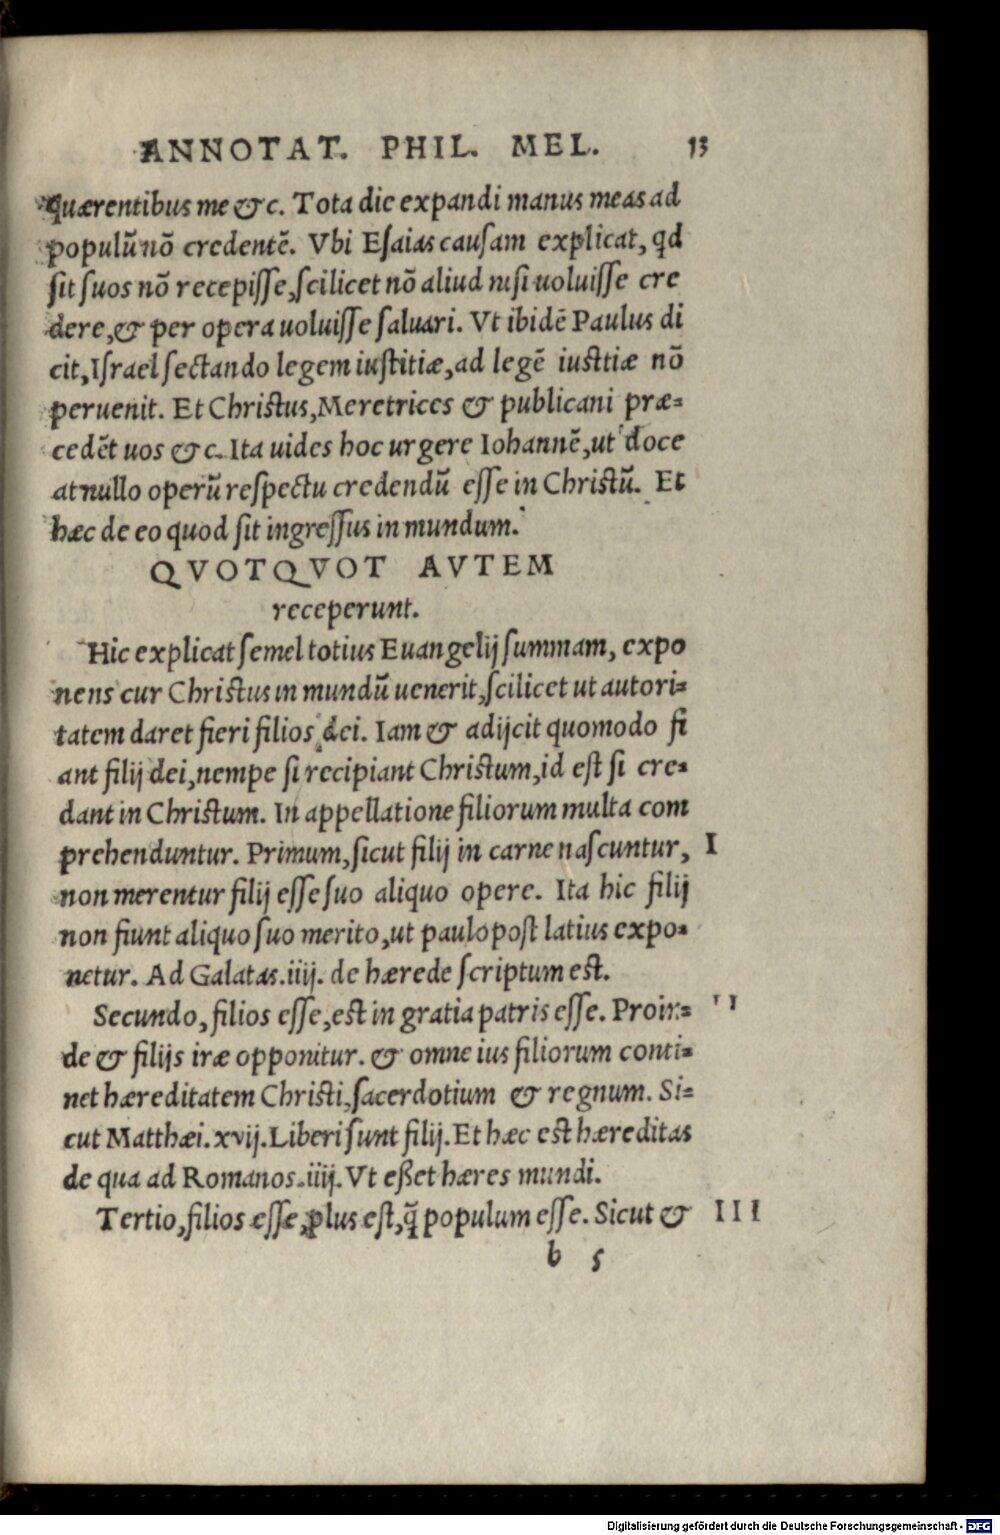 ANNOTAT. PHIL. MEL. 13
quærentibus me &c. Tota die expandi manus meas ad
populũ nõ credentẽ. Vbi Eſaias cauſam explicat, qd
ſit ſuos nõ recepiſſe, ſcilicet nõ aliud niſi uoluiſſe cre
dere, & per opera uoluiſſe ſaluari. Vt ibidẽ Paulus di
cit, Iſrael ſectando legem iuſtitiæ, ad legẽ iuſttiæ nõ
peruenit. Et Chriſtus, Meretrices & publicani præ=
cedẽt uos &c. Ita uides hoc urgere Iohannẽ, ut doce
at nullo operũ reſpectu credendũ eſſe in Chriſtũ. Et
hæc de eo quod ſit ingreſſus in mundum.
QVOTQVOT AVTEM
receperunt.
Hic explicat ſemel totius Euangelij ſummam, expo
nens cur Chriſtus in mundũ uenerit, ſcilicet ut autori=
tatem daret fieri filios dei. Iam & adijcit quomodo fi
ant filij dei, nempe ſi recipiant Chriſtum, id eſt ſi cre=
dant in Chriſtum. In appellatione filiorum multa com
prehenduntur. Primum, ſicut filij in carne naſcuntur, I
non merentur filij eſſe ſuo aliquo opere. Ita hic filij
non fiunt aliquo ſuo merito, ut paulo poſt latius expo=
netur. Ad Galatas.iiij. de hærede ſcriptum eſt.
Secundo, filios eſſe, eſt in gratia patris eſſe. Proin= II
de & filijs iræ opponitur. & omne ius filiorum conti=
net hæreditatem Chriſti, ſacerdotium & regnum. Si=
cut Matthæi.xvij. Liberi ſunt filij. Et hæc eſt hæreditas
de qua ad Romanos.iiij. Vt eßet hæres mundi.
Tertio, filios eſſe, plus eſt, q̃ populum eſſe. Sicut & III
b 5
Digitalisierung gefördert durch die Deutsche Forschungsgemeinschaft - DFG